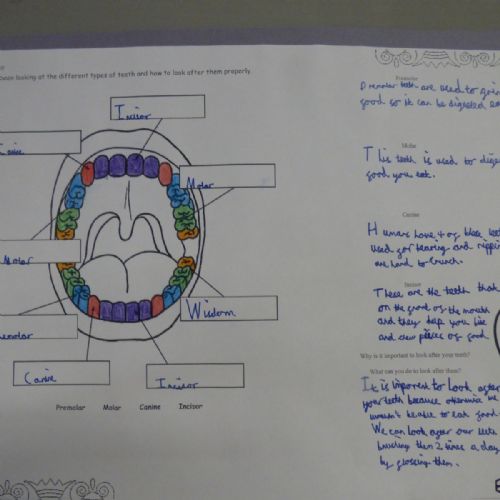 been looking at the different types of teeth and how to look after them properly.
Incisor
Molar
Wisdom
Canine
Incisor
Premolar Molar Canine Incisor
Premolar
Premolar teeth are used to
good so it can be digested
Molar
This teeth is used to
good you eat.
Canine
Humans have 4 of these
used for tearing and
are hard to crunch.
Incisor
These are the teeth that
on the front of the mouth
and they help you bite
and chew pieces of food
Why is it important to look after your teeth?
What can you do to look after them?
It is important to look after
your teeth because otherwise we
wouldn't be able to eat food
We can look after our teeth
brushing them 2 times a day
by flossing them.